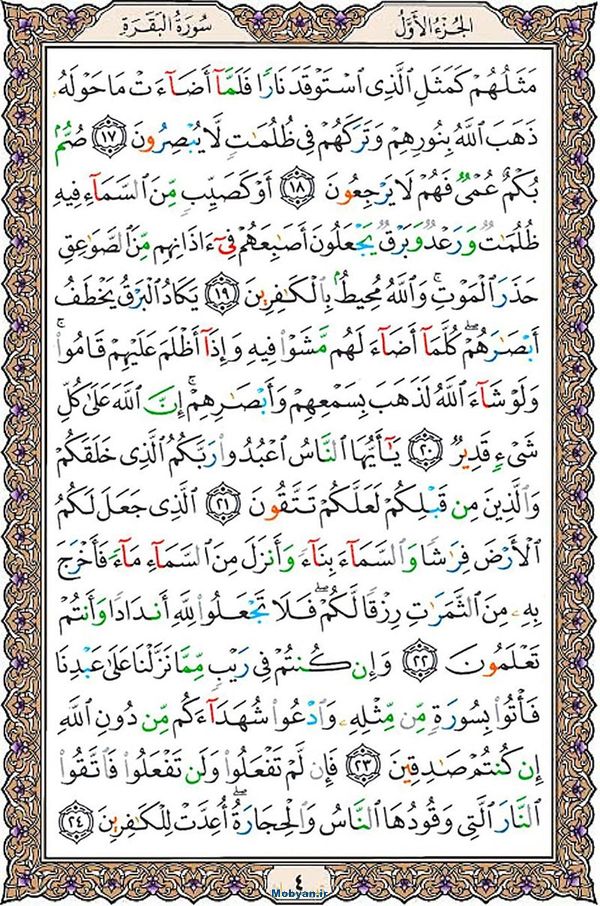 سُورَةُ البَقَرَةِ
الجُزءُ الأَوَّلُ
مَثَلُهُمْ كَمَثَلِ الَّذِي اسْتَوْقَدَ نَارًا فَلَمَّآ أَضَآءَتْ مَا حَوْلَهُ
ذَهَبَ اللَّهُ بِنُورِهِمْ وَتَرَكَهُمْ فِي ظُلُمَاتٍ لَّا يُبْصِرُونَ ١٧ صُمٌّ
بُكْمٌ عُمْيٌ فَهُمْ لَا يَرْجِعُونَ ١٨ أَوْ كَصَيِّبٍ مِّنَ السَّمَآءِ فِيهِ
ظُلُمَاتٌ وَرَعْدٌ وَبَرْقٌ يَجْعَلُونَ أَصَابِعَهُمْ فِيٓ ءَاذَانِهِم مِّنَ الصَّوَاعِقِ
حَذَرَ الْمَوْتِ ۚ وَاللَّهُ مُحِيطٌ بِالْكَافِرِينَ ١٩ يَكَادُ الْبَرْقُ يَخْطَفُ
أَبْصَارَهُمْ ۖ كُلَّمَآ أَضَآءَ لَهُم مَّشَوْا فِيهِ وَإِذَآ أَظْلَمَ عَلَيْهِمْ قَامُوا ۚ
وَلَوْ شَآءَ اللَّهُ لَذَهَبَ بِسَمْعِهِمْ وَأَبْصَارِهِمْ ۚ إِنَّ اللَّهَ عَلَىٰ كُلِّ
شَيْءٍ قَدِيرٌ ٢٠ يَآأَيُّهَا النَّاسُ اعْبُدُوا رَبَّكُمُ الَّذِي خَلَقَكُمْ
وَالَّذِينَ مِن قَبْلِكُمْ لَعَلَّكُمْ تَتَّقُونَ ٢١ الَّذِي جَعَلَ لَكُمُ
الْأَرْضَ فِرَاشًا وَالسَّمَآءَ بِنَآءً وَأَنزَلَ مِنَ السَّمَآءِ مَآءً فَأَخْرَجَ
بِهِ مِنَ الثَّمَرَاتِ رِزْقًا لَّكُمْ ۖ فَلَا تَجْعَلُوا لِلَّهِ أَندَادًا وَأَنتُمْ
تَعْلَمُونَ ٢٢ وَإِن كُنتُمْ فِي رَيْبٍ مِّمَّا نَزَّلْنَا عَلَىٰ عَبْدِنَا
فَأْتُوا بِسُورَةٍ مِّن مِّثْلِهِ وَادْعُوا شُهَدَآءَكُم مِّن دُونِ اللَّهِ
إِن كُنتُمْ صَادِقِينَ ٢٣ فَإِن لَّمْ تَفْعَلُوا وَلَن تَفْعَلُوا فَاتَّقُوا
النَّارَ الَّتِي وَقُودُهَا النَّاسُ وَالْحِجَارَةُ ۖ أُعِدَّتْ لِلْكَافِرِينَ ٢٤
٤
Mobyan.ir